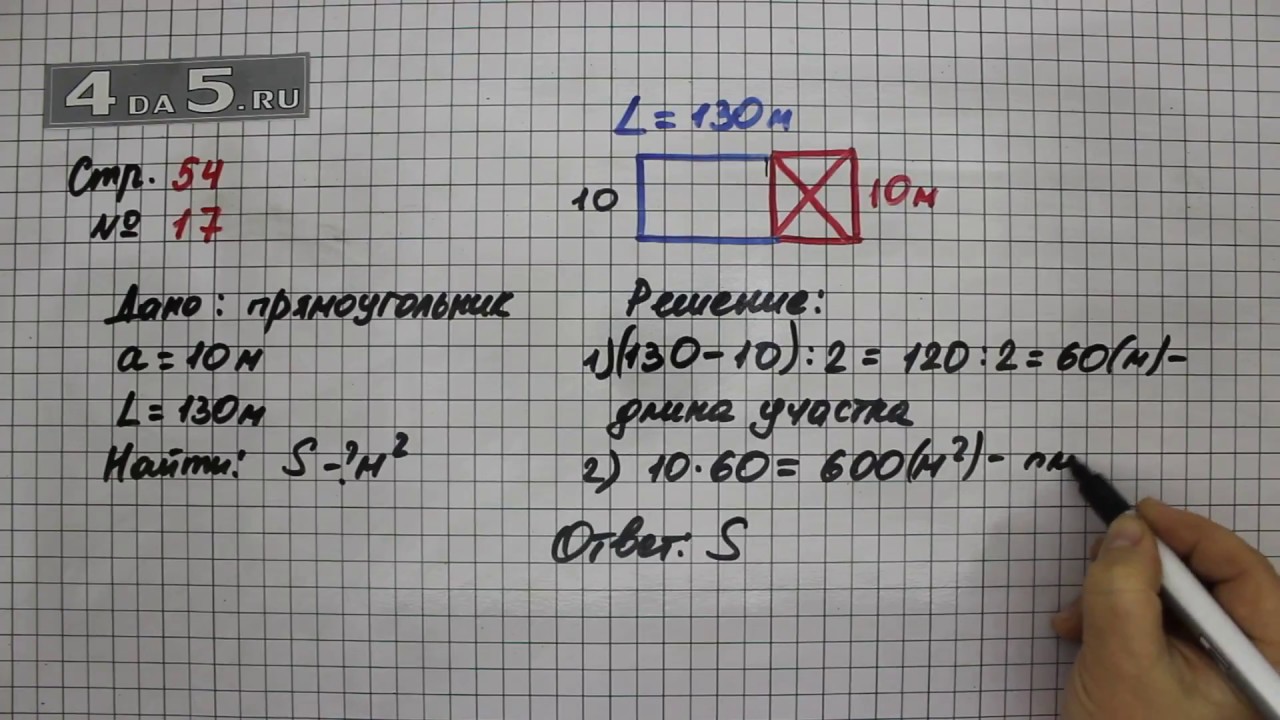 4DA5.RU
Стр. 54
№ 17
L = 130м
10
10м
Дано: прямоугольник
a = 10м
L = 130м
Найти: S - ? м²
Решение:
1) (130 - 10) : 2 = 120 : 2 = 60(м) -
длина участка
2) 10 · 60 = 600(м²) -
Ответ: S